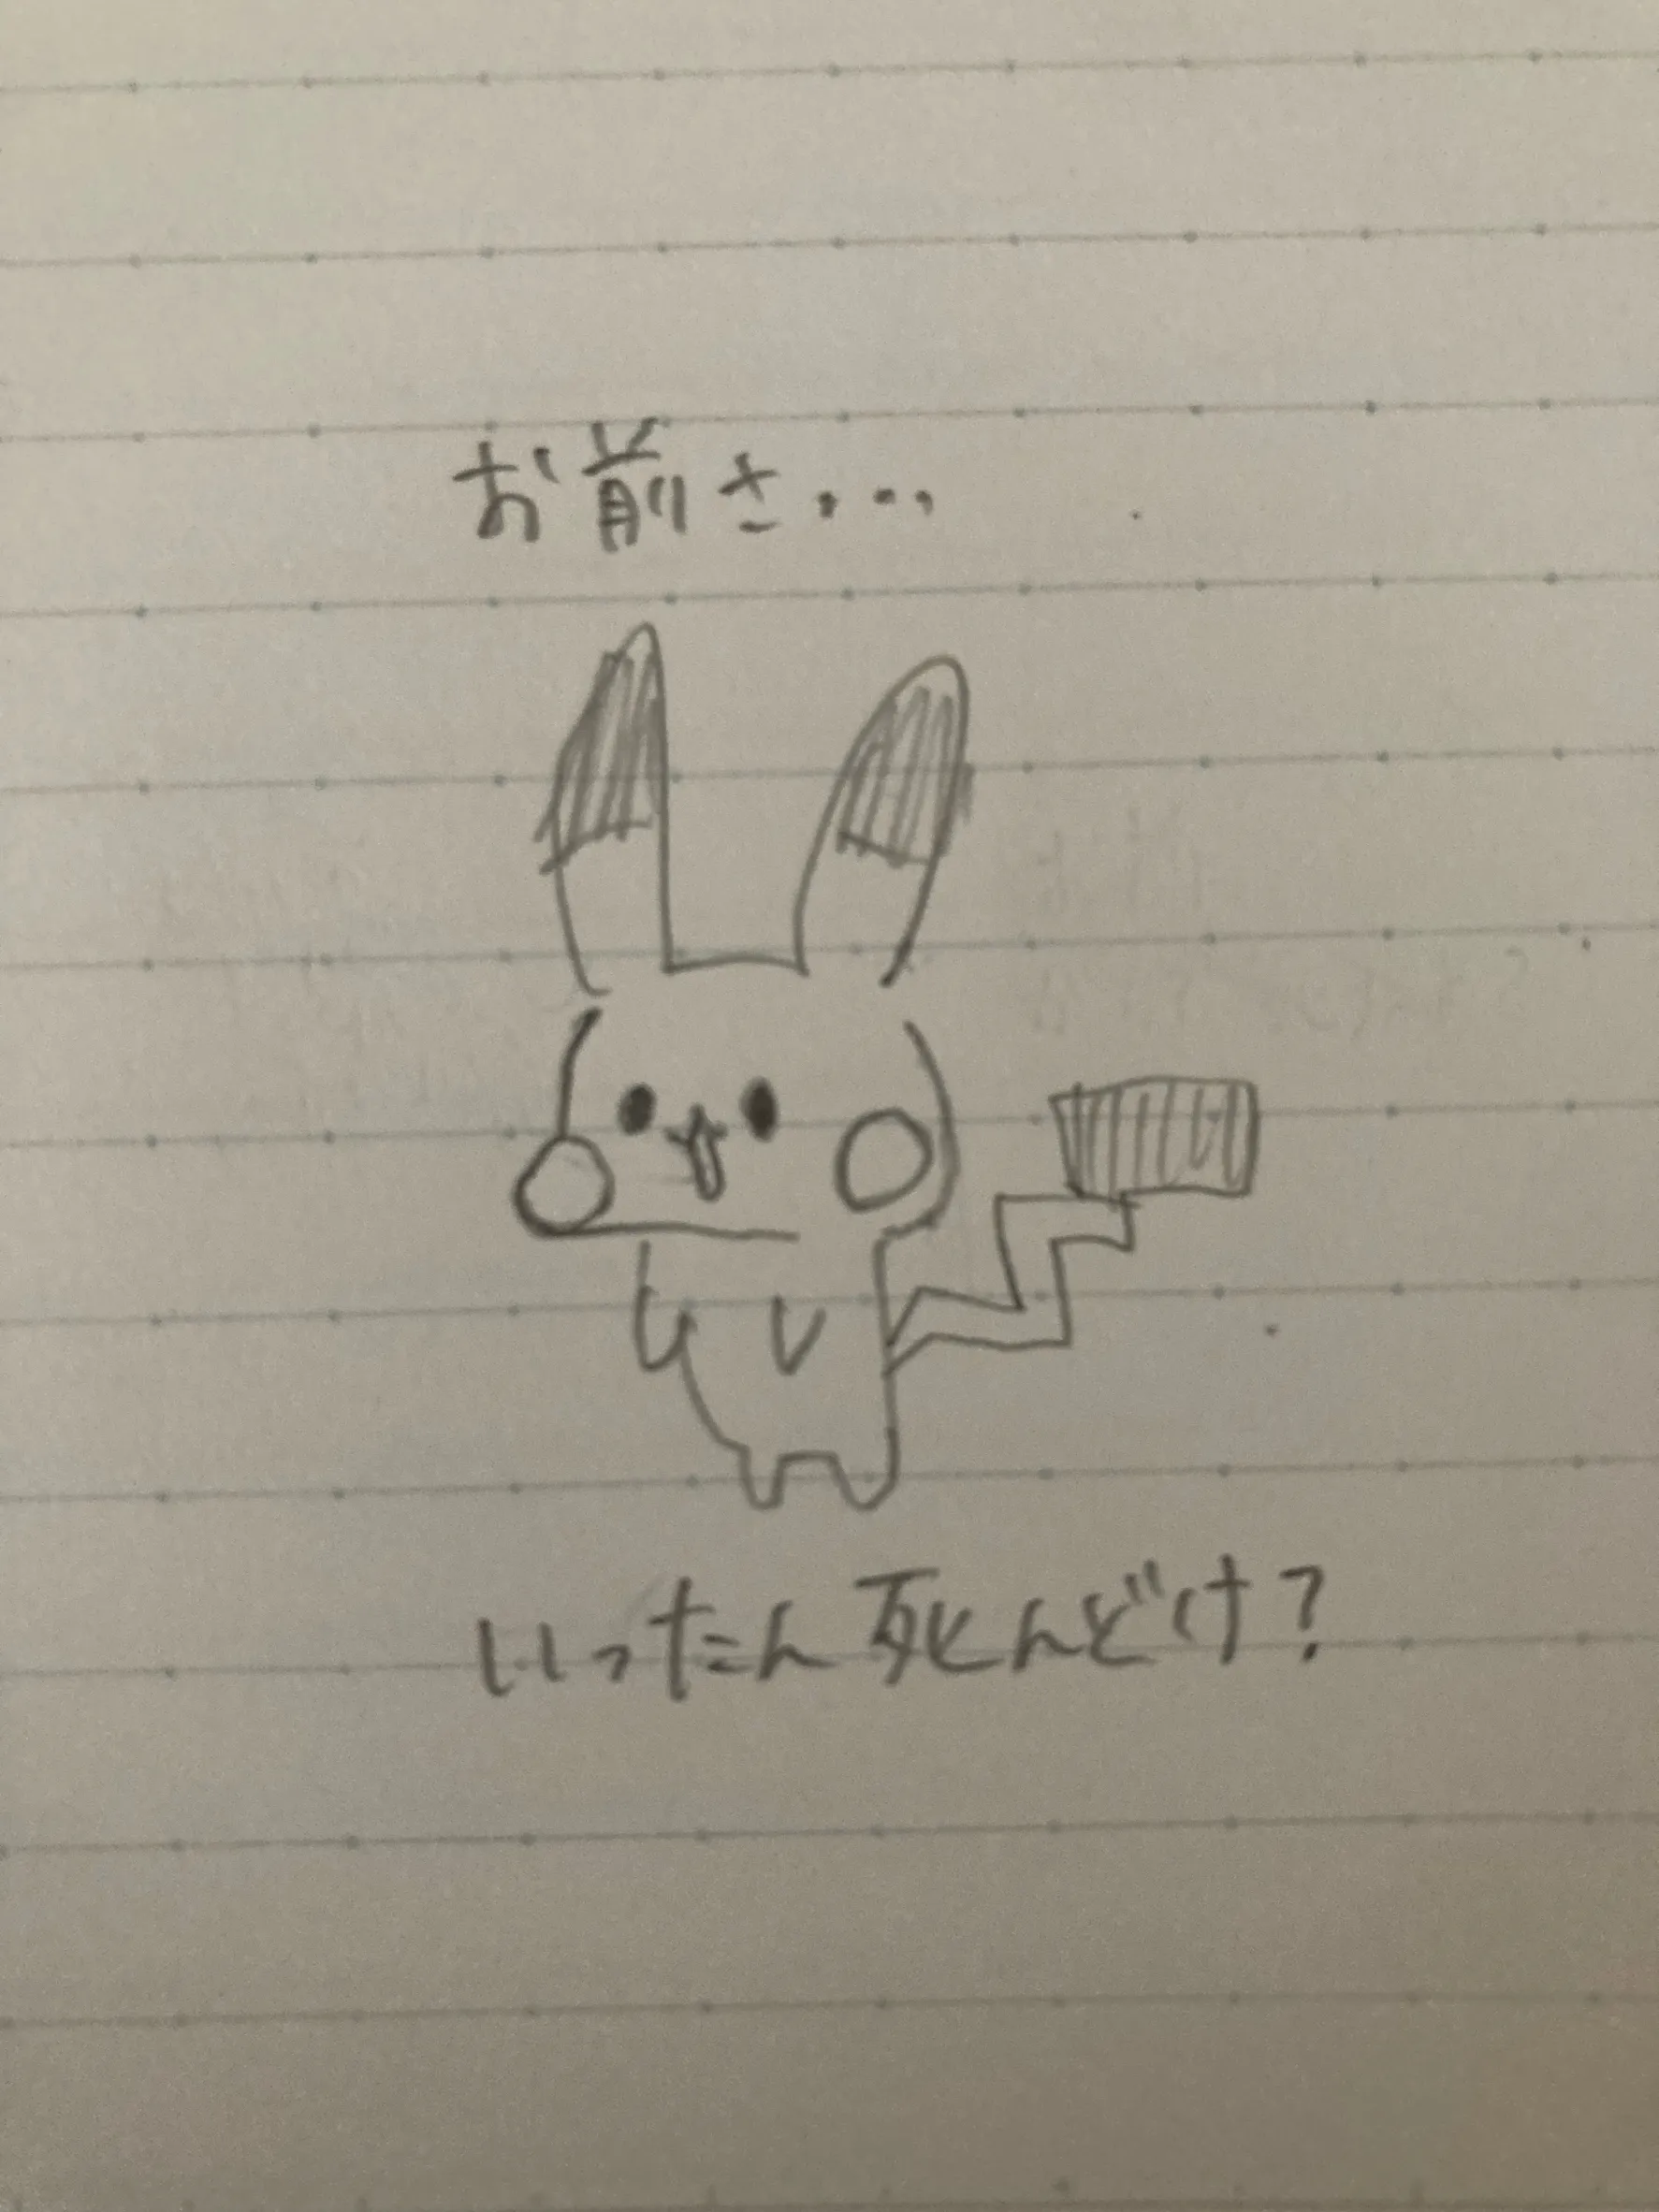 お前さ...
いったん死んどけ?